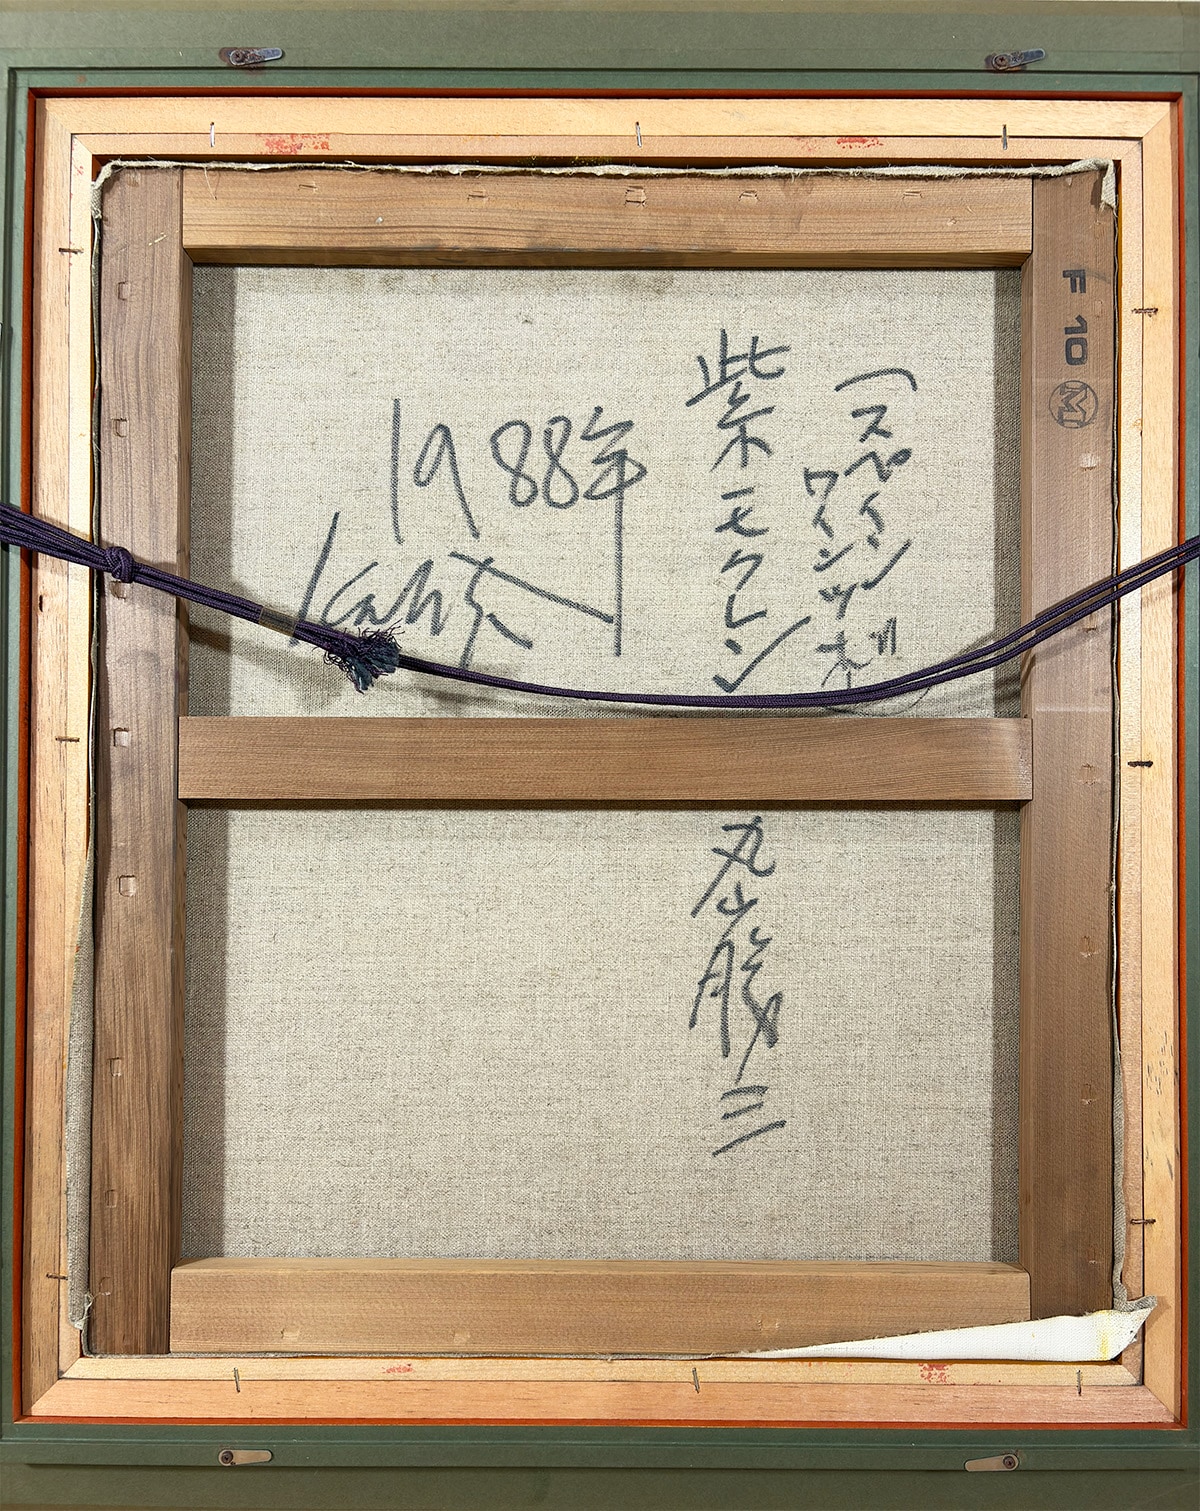 F 10 M
(スペイン
ワインツボ
紫木モクレン
1988年
Katsu
丸山勝三